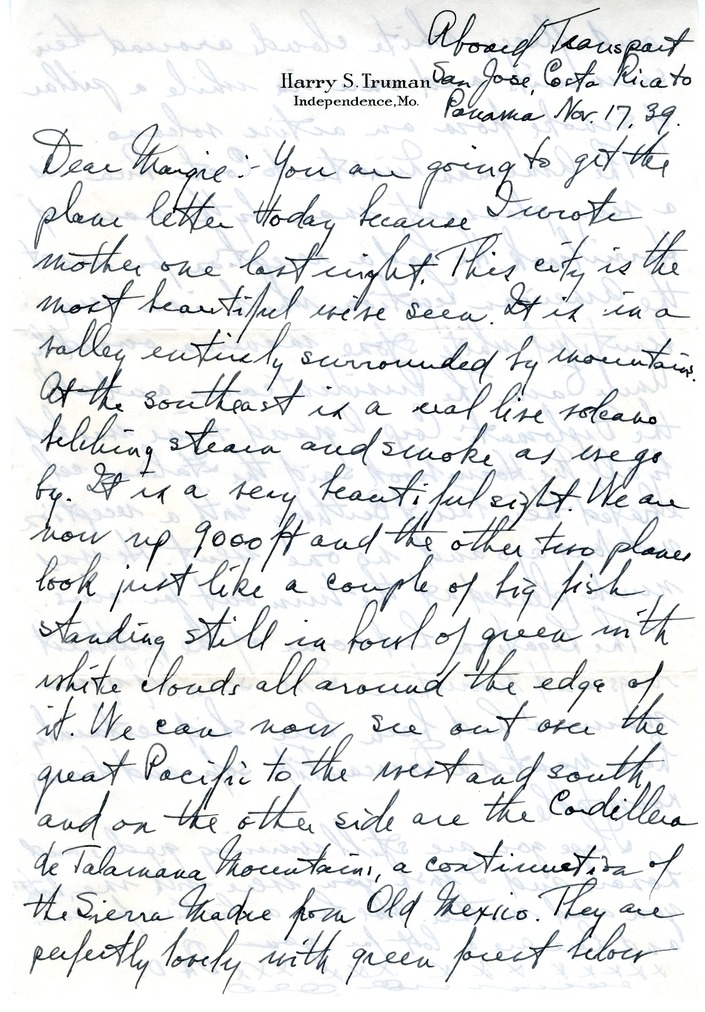 Aboard Transport
San Jose, Costa Rica to
Panama Nov. 17, 39.
Harry S. Truman
Independence, Mo.
Dear Margie:- You are going to get the
plane letter today because I wrote
mother one last night. This city is the
most beautiful we've seen. It is in a
valley entirely surrounded by mountains.
At the southeast is a real live volcano
belching steam and smoke as we go
by. It is a very beautiful sight. We are
now up 9000 ft and the other two planes
look just like a couple of big fish
standing still in bowl of green with
white clouds all around the edge of
it. We can now see out over the
great Pacific to the west and south
and on the other side are the Cordillera
de Talamana Mountains, a continuation of
the Sierra Madre from Old Mexico. They are
perfectly lovely with green forest below